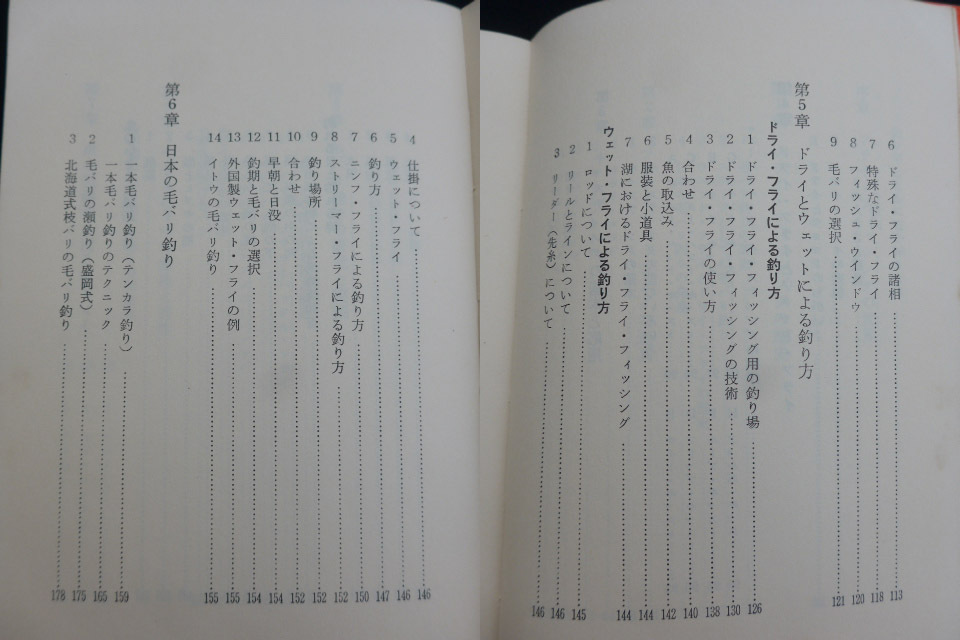 6 ドライ・フライの諸相 113
7 特殊なドライ・フライ 118
8 フィッシュ・ウインドウ 120
9 毛バリの選択 121
第5章 ドライとウェットによる釣り方
ドライ・フライによる釣り方
1 ドライ・フライ・フィッシング用の釣り場 126
2 ドライ・フライ・フィッシングの技術 130
3 ドライ・フライの使い方 138
4 合わせ 140
5 魚の取込み 142
6 服装と小道具 144
7 湖におけるドライ・フライ・フィッシング 144
ウェット・フライによる釣り方
1 ロッドについて 145
2 リールとラインについて 146
3 リーダー(先糸)について 146
4 仕掛について 146
5 ウェット・フライ 146
6 釣り方 147
7 ニンフ・フライによる釣り方 150
8 ストリーマー・フライによる釣り方 152
9 釣り場所 152
10 合わせ 152
11 早朝と日没 154
12 釣期と毛バリの選択 154
13 外国製ウェット・フライの例 155
14 イトウの毛バリ釣り 155
第6章 日本の毛バリ釣り
1 一本毛バリ釣り(テンカラ釣り) 159
一本毛バリ釣りのテクニック 165
2 毛バリの瀬釣り(盛岡式) 175
3 北海道式枝バリの毛バリ釣り 178